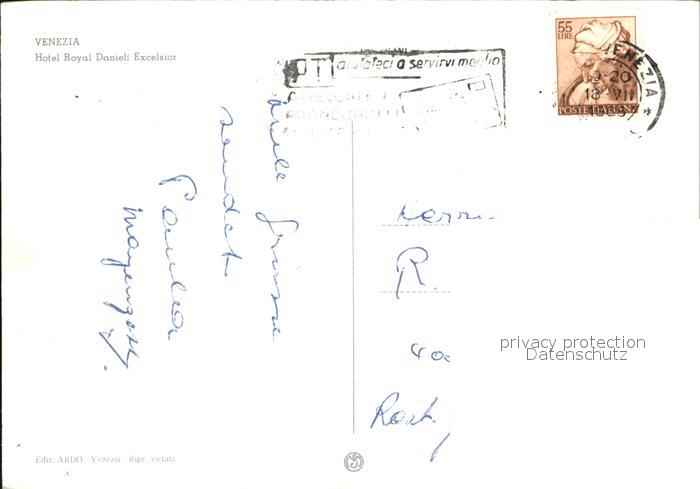 VENEZIA
Hotel Royal Danieli Excelsior
PTT aiutateci a servirvi meglio
55
LIRE
POSTE ITALIANE
VENEZIA
9-20
18 VII
Viele Grüsse
sendet
Paula
Herrn
R.
40
privacy protection
Datenschutz
Ediz. ARDO - Venezia - Ripr. vietata